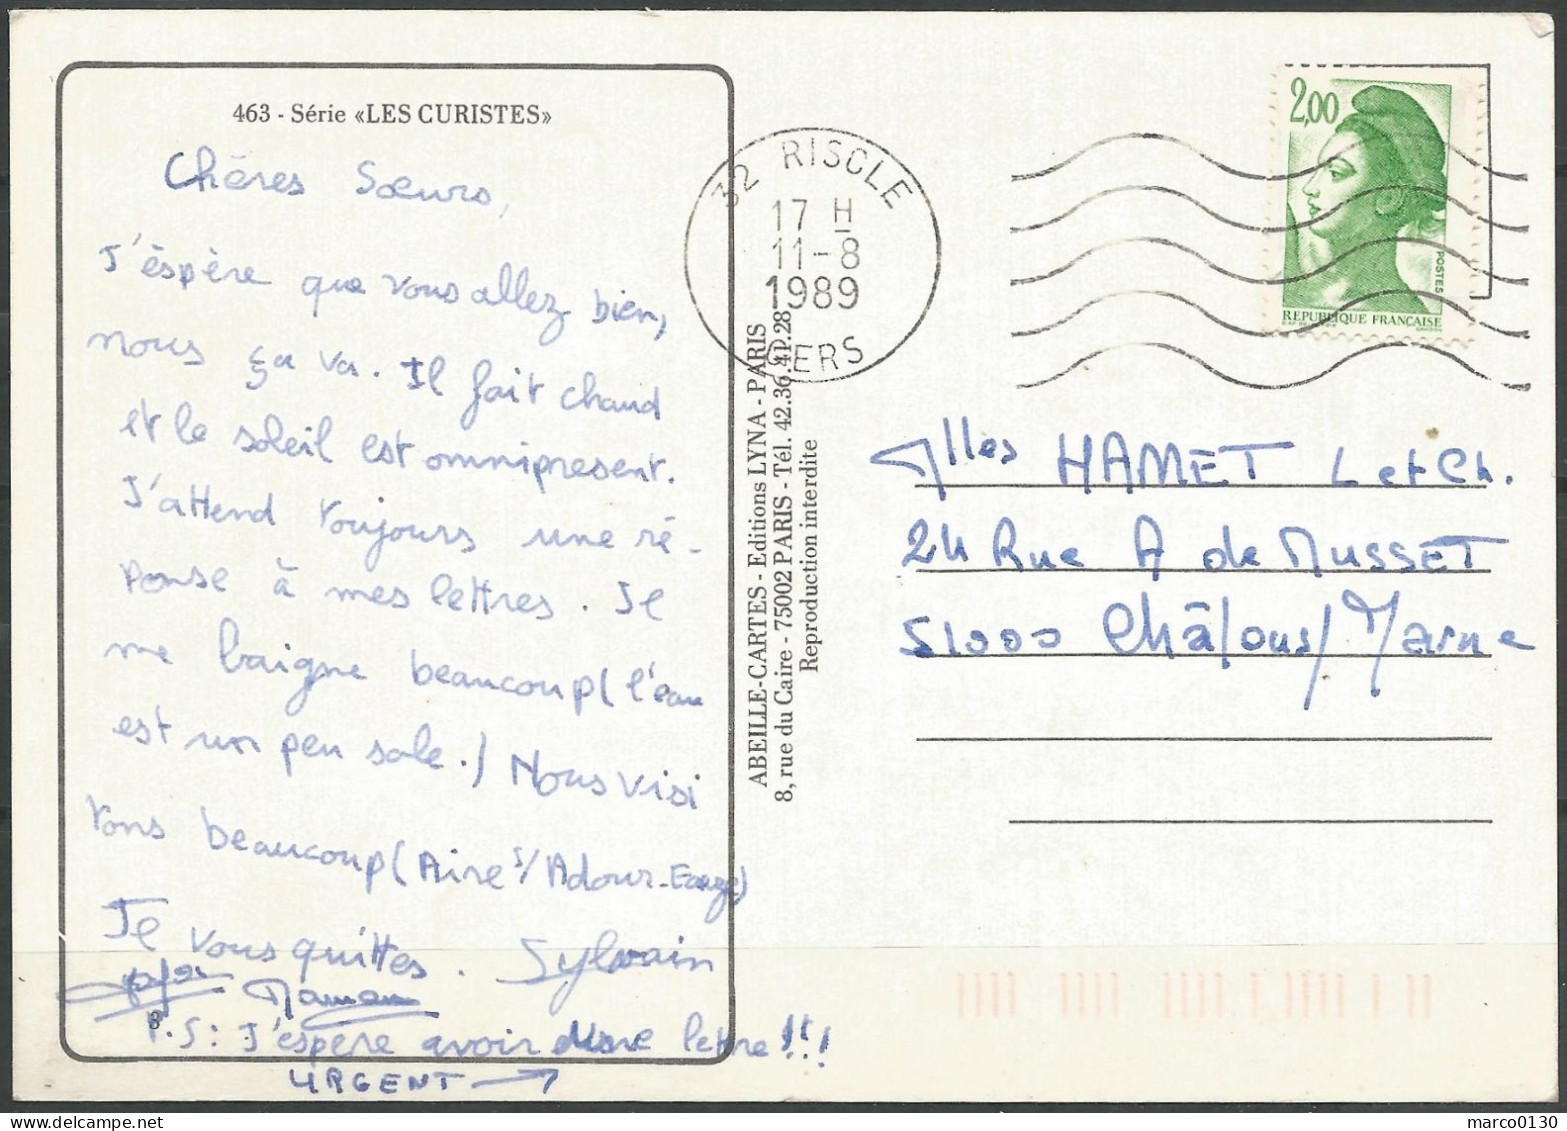 463 - Série «LES CURISTES»
Chères Soeurs,
J'éspère que vous allez bien,
nous ça va. Il fait chaud
et le soleil est omnipresent.
J'attend toujours une ré-
ponse à mes lettres. Je
me baigne beaucoup (l'eau
est un peu sale.) Nous visi
tons beaucoup (Aire s/Adour-Eauze)
Je vous quittes. Sylvain
Maman
8
P.S: J'espère avoir une lettre!!!
URGENT →
ABEILLE-CARTES - Editions LYNA - PARIS
8, rue du Caire - 75002 PARIS - Tél. 42.36.41.28
Reproduction interdite
32 RISCLE
17 H
11-8
1989
GERS
2,00
POSTES
REPUBLIQUE FRANÇAISE
Mlles HAMET L et Ch.
24 Rue A de MUSSET
51000 Châlons/Marne
marco0130